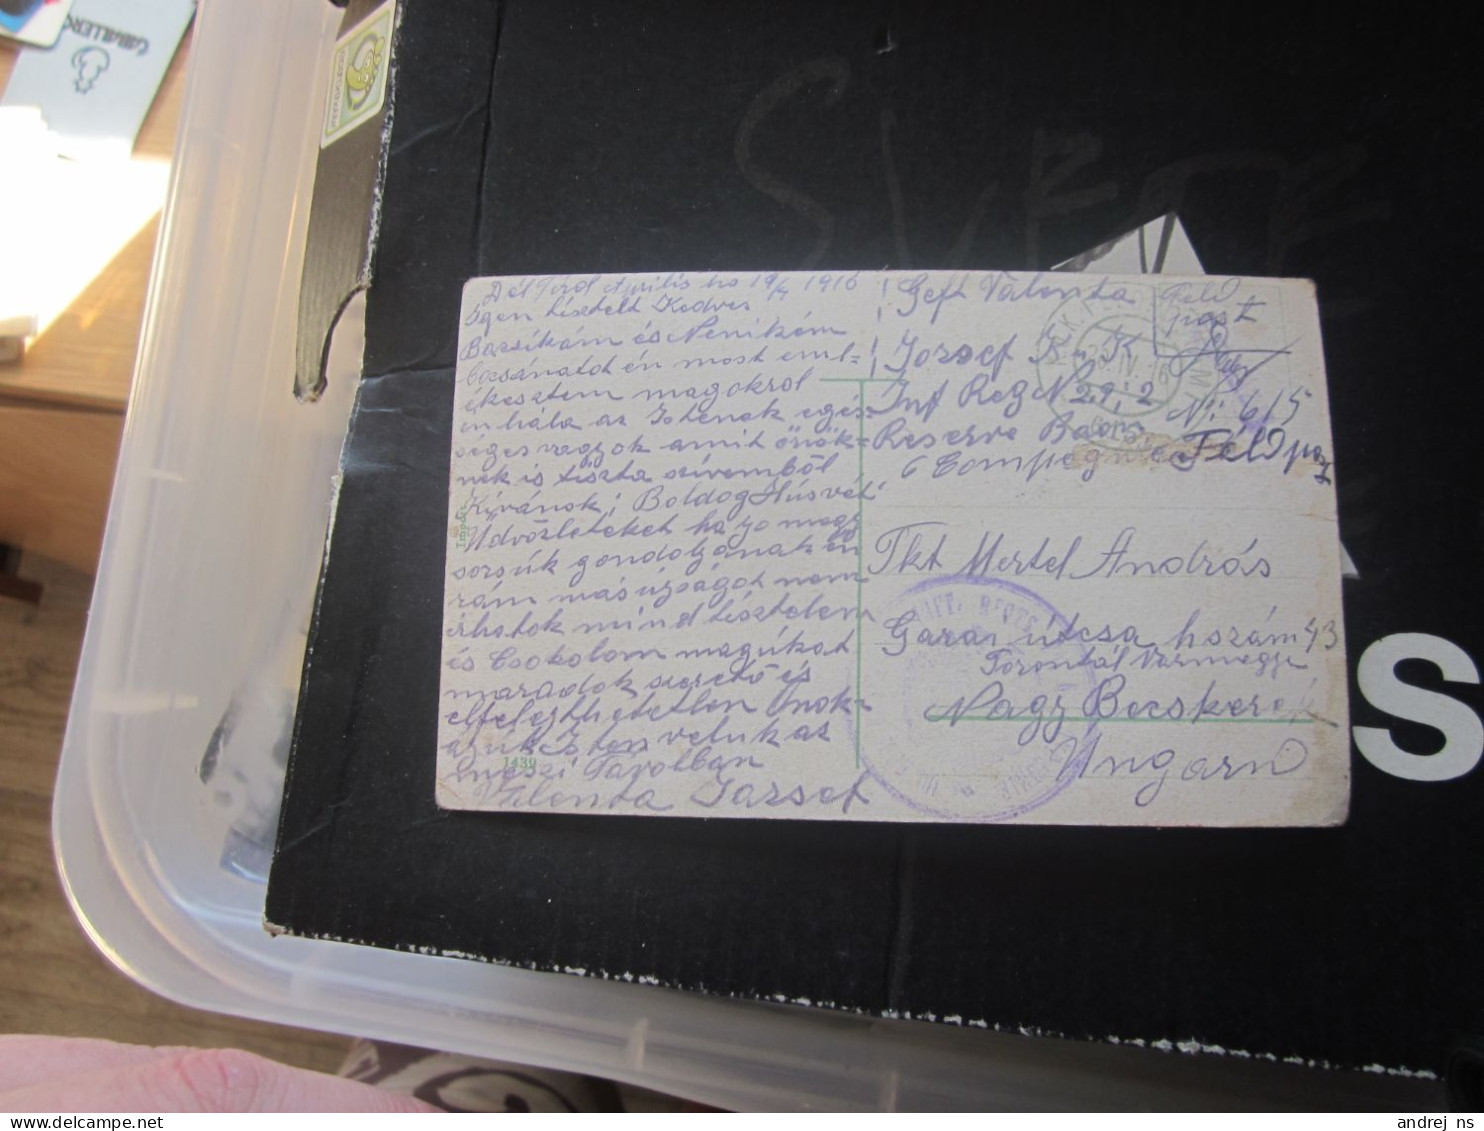 Dél Tirol Április hó 19/4 1916
Igen tisztelt Kedves
Bácsikám és Nenikém
bocsánatot én most eml=
ékesztem magokrol
én hála az Istenek egés=
séges vagyok amit önök=
nek is tiszta szívemből
Kivánok; Boldog Húsvéti
Üdvözleteket ha jo magy
sorsúk gondoljanak én
rám más újságot nem
irhatok mind tisztelem
és Csokolom magúkat
maradok szerető és
elfelejthetetlen Unok=
Isten veluk az
Tavolban
Valenta Jozsef
1439
Geft Valenta
Jozsef K. K
Inf Reg N 29, 2
Reserve Baons
6 Compagnie
Feld
post
Nr: 615
Féldpost
Tkt Mertel András
Garai útcsa hszám 43
Torontál Varmegye
Nagy Becskerek
Ungarn
28. IV. 16
SILBER
S
CABALLERO
andrej_ns